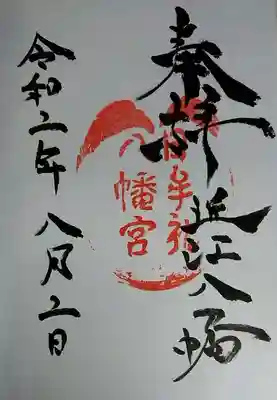 奉拝
近江八幡
八幡宮
令和二年八月二日